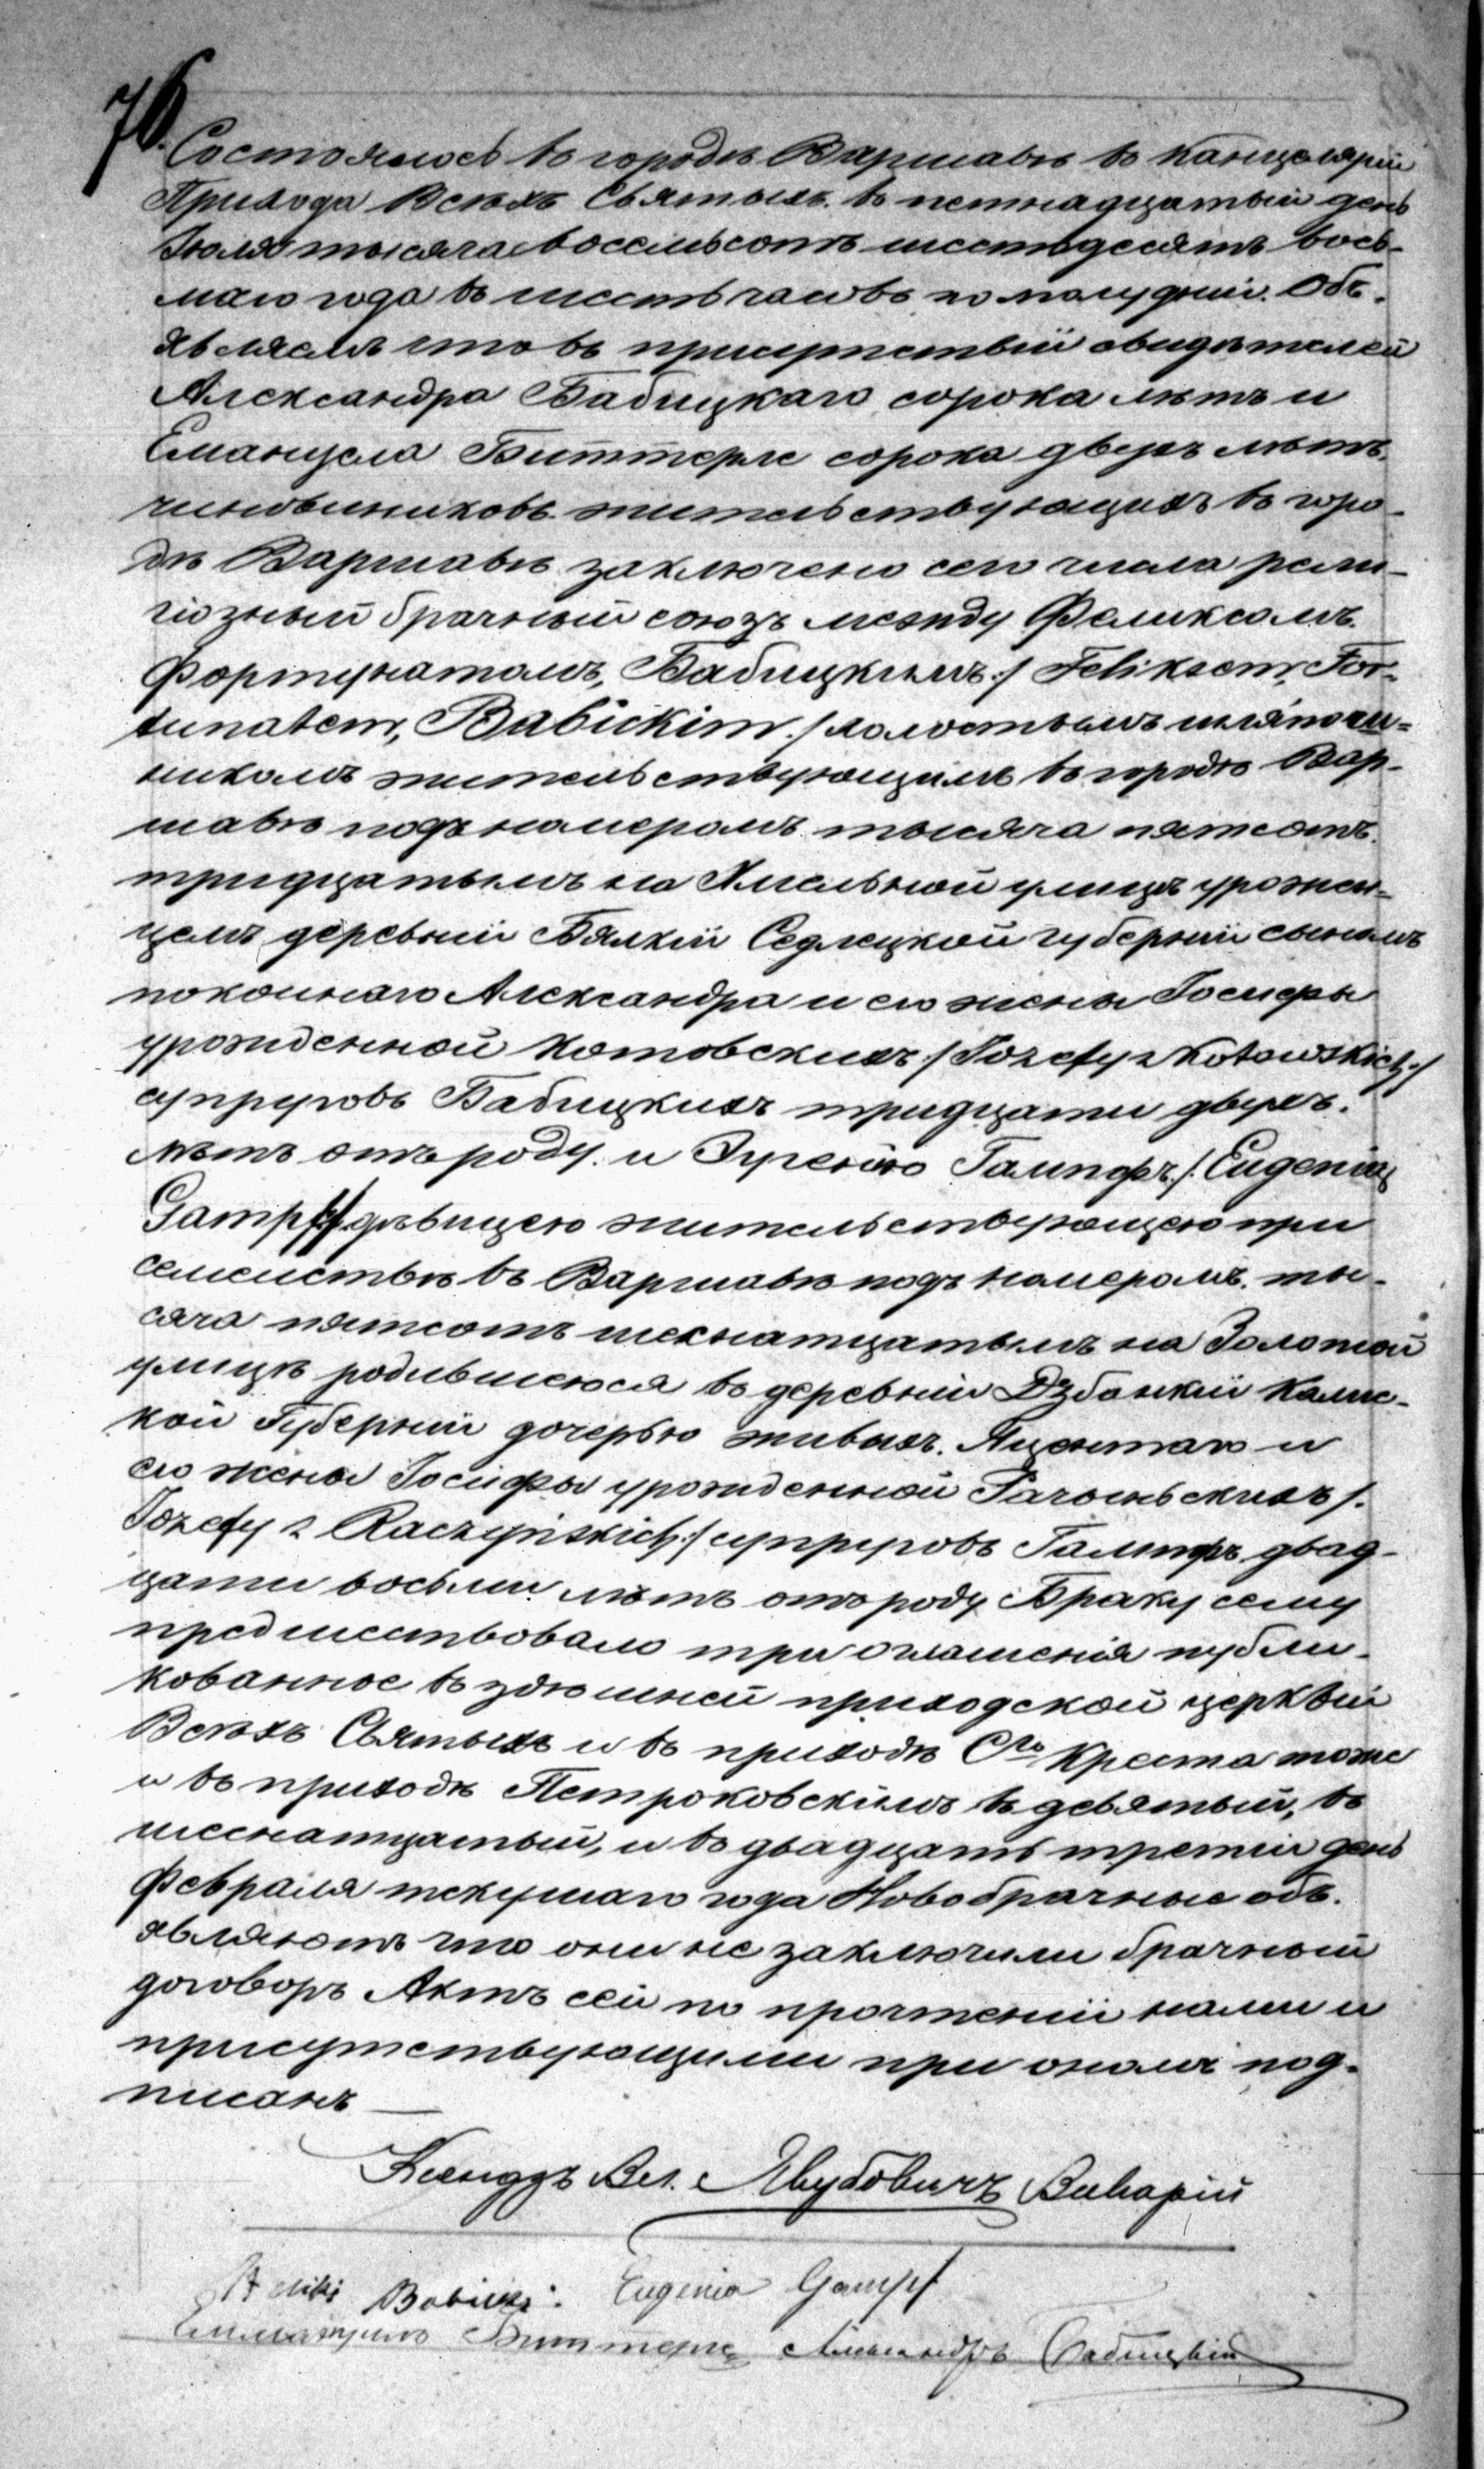 76.
Состоялось въ городѣ Варшавѣ въ Канцелярiи
Прихода Всѣхъ Святыхъ въ петнадцатый день
Iюля тысяча восемьсотъ шестьдесятъ вось-
маго года въ шесть часовъ по полуднiи. Объ-
являемъ что въ присутствiи свидѣтелей
Александра Бабицкаго сорока лѣтъ и
Емануела Биттерле сорока двухъ лѣтъ
чиновниковъ жительствующихъ въ горо-
дѣ Варшавѣ заключено сего числа рели-
гiозный брачный союзъ между Феликсомъ
Фортунатомъ, Бабицкимъ ./ Feliksem, For-
tunatem, Babickim./ холостымъ шляпочн-
никомъ жительствующимъ въ городѣ Вар-
шавѣ подъ номеромъ тысяча пятсотъ
тридцатымъ на Хмельной улицѣ урожен-
цемъ деревнiи Бялкiи Седлецкой губернiи сыномъ
покойнаго Александра и его жены Iосифы
урожденной Котовскихъ ./ Józefy z Kotowskich ./
супруговъ Бабицкихъ тридцати двухъ
лѣтъ отъ роду. и Эугенiю Гампфъ ./. Eugenią
Gampf ./ дѣвицею жительствующею при
семействѣ въ Варшавѣ подъ номеромъ ты-
сяча пятсотъ шеснатцатымъ на Золотой
улицѣ родившеюся въ деревнiи Дзбанкiи Калис-
кой Губернiи дочерью живыхъ Яцентаго и
его жены Iосифы урожденной Рачиньскихъ /.
Józefy z Raczyńskich ./ супруговъ Гампфъ двад-
цати восьми лѣтъ отъ роду Браку сему
предшествовало три оглашенiя публи-
кованное въ здѣшней приходской церквiи
Всѣхъ Святыхъ и въ приходѣ Сго Креста тоже
и въ приходѣ Петроковскiмъ въ девятый, въ
шеснатцатый, и въ двадцать третiй день
Февраля текущаго года Новобрачные объ-
являютъ что они не заключили брачный
договоръ Актъ сей по прочтенiи нами и
присутствующими при ономъ под-
писанъ
Ксендзъ Вл. Викарiй
Babicki. Eugenia Gampf
Биттерле Александръ Бабицкiй